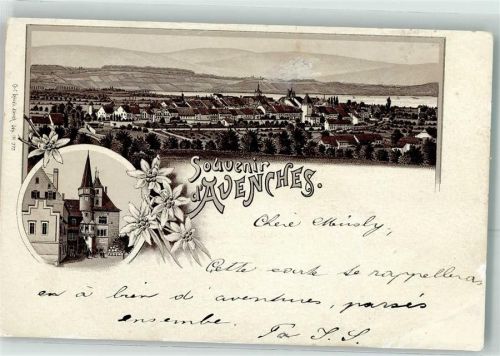 Souvenir
d'AVENCHES.
Cherè
Cette carte te rappelleras
en à bien d'aventures, passés
ensemble. Ta J. S.